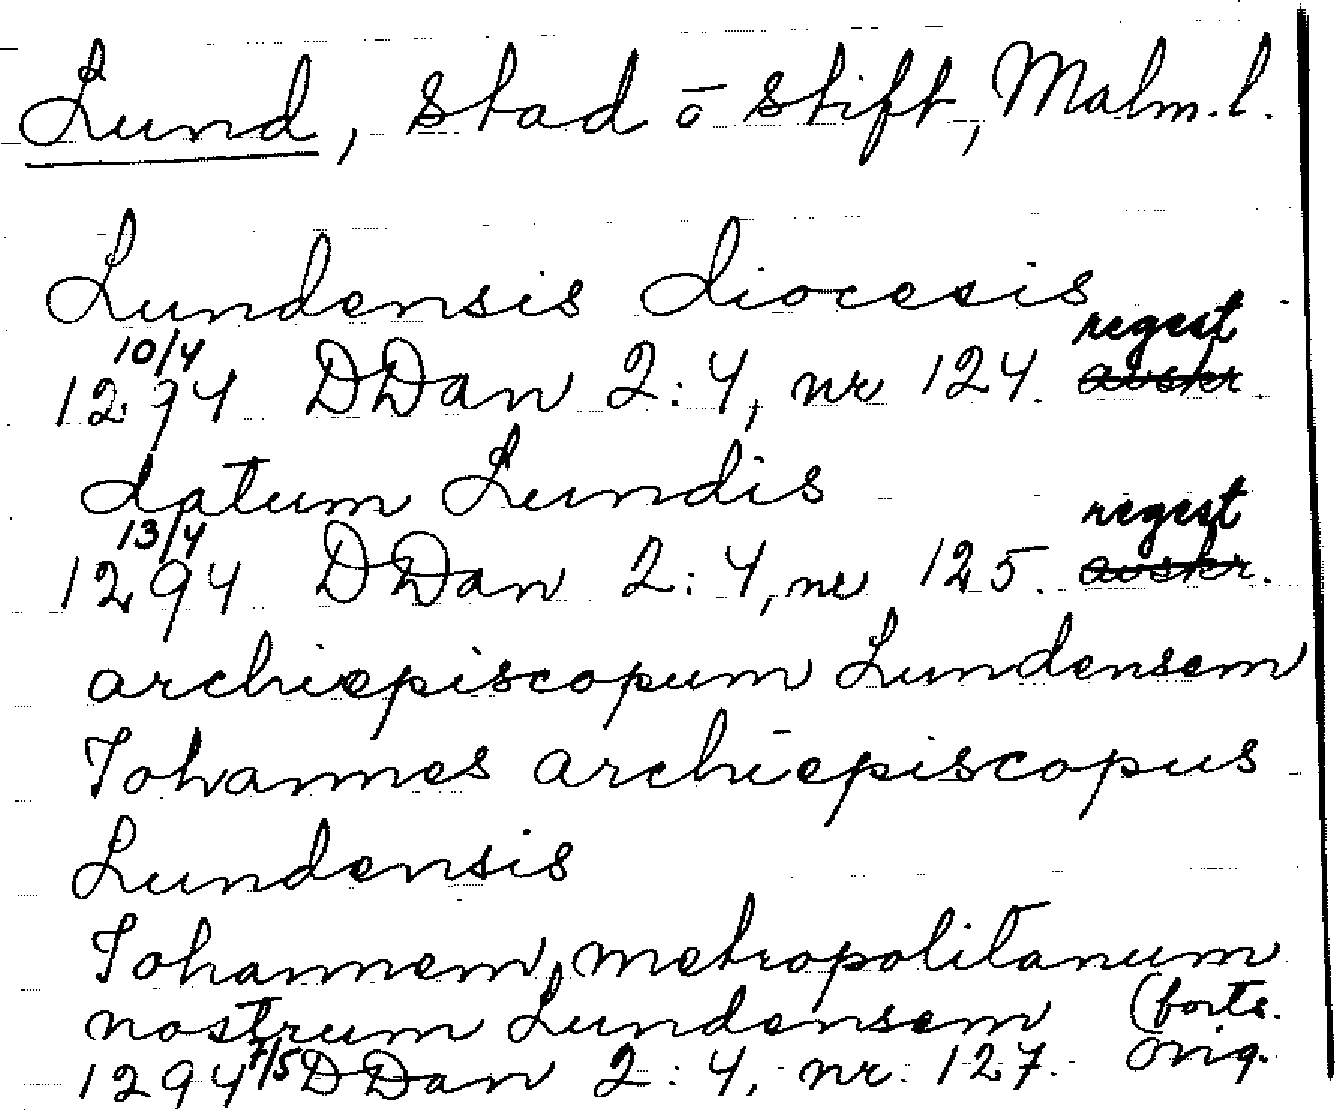 Lund, stad o stift, Malm. l.
Lundensis diocesis
10/4 regest
1294 DDan 2:4, nr 124. avskr.
datum Lundis
13/4 regest
1294 DDan 2:4, nr 125. avskr.
archiepiscopum Lundensem
Johannes archiepiscopus
Lundensis
Johannem, metropolitanum
nostrum Lundensem (forts.
1294 7/5 DDan 2:4, nr. 127. orig.